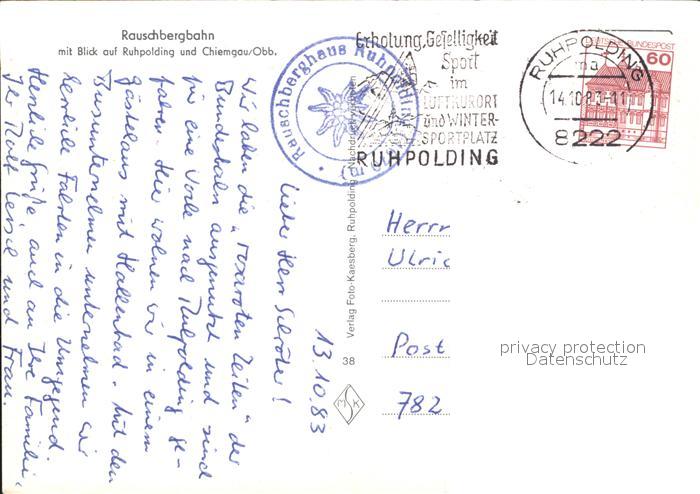 Rauschbergbahn
mit Blick auf Ruhpolding und Chiemgau/Obb.
Rauschberghaus Ruhpolding
Erholung, Geselligkeit
Sport
im
LUFTKURORT
und WINTER-
SPORTPLATZ
RUHPOLDING
RUHPOLDING
14.10.83-11
8222
DEUTSCHE BUNDESPOST
60
13.10.83
Liebe Herr Schröter!
Wir haben die „rosaroten Zeiten" der
Bundesbahn ausgenutzt und sind
für eine Woche nach Ruhpolding ge-
fahren. Hier wohnen wir in einem
Gästehaus mit Hallenbad. Mit den
Busunternehmen unternehmen wir
herrliche Fahrten in die Umgegend.
Herzliche Grüße auch an Ihre Familie,
Ihr Rolf und Frau.
Verlag Foto-Kaesberg, Ruhpolding Nachdruck verboten
38
MSK
Herrn
Ulric
Post
782
privacy protection
Datenschutz